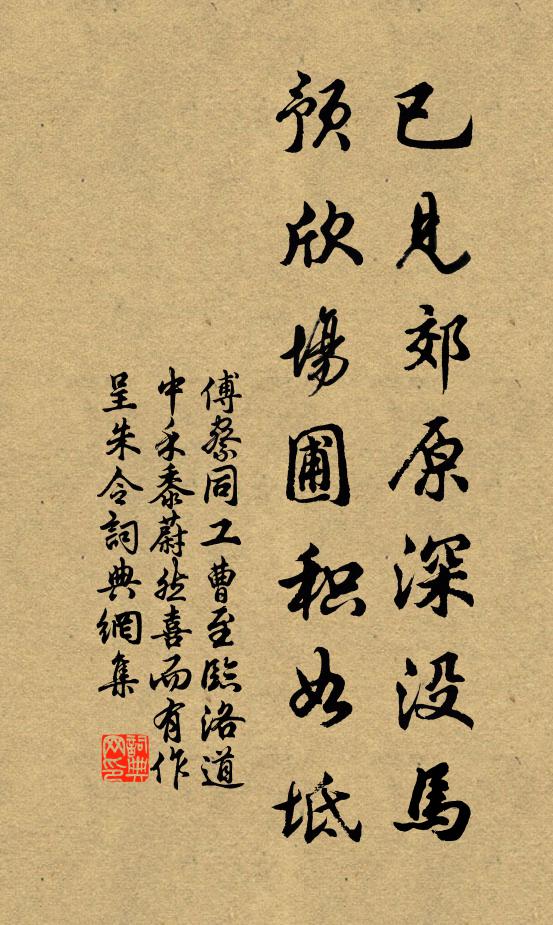 已見郊原深没馬
預欣場圃積如坻
傅察同工曹至臨洛道
中禾黍蔚然喜而有作
呈朱令詞典網集
詞典网印